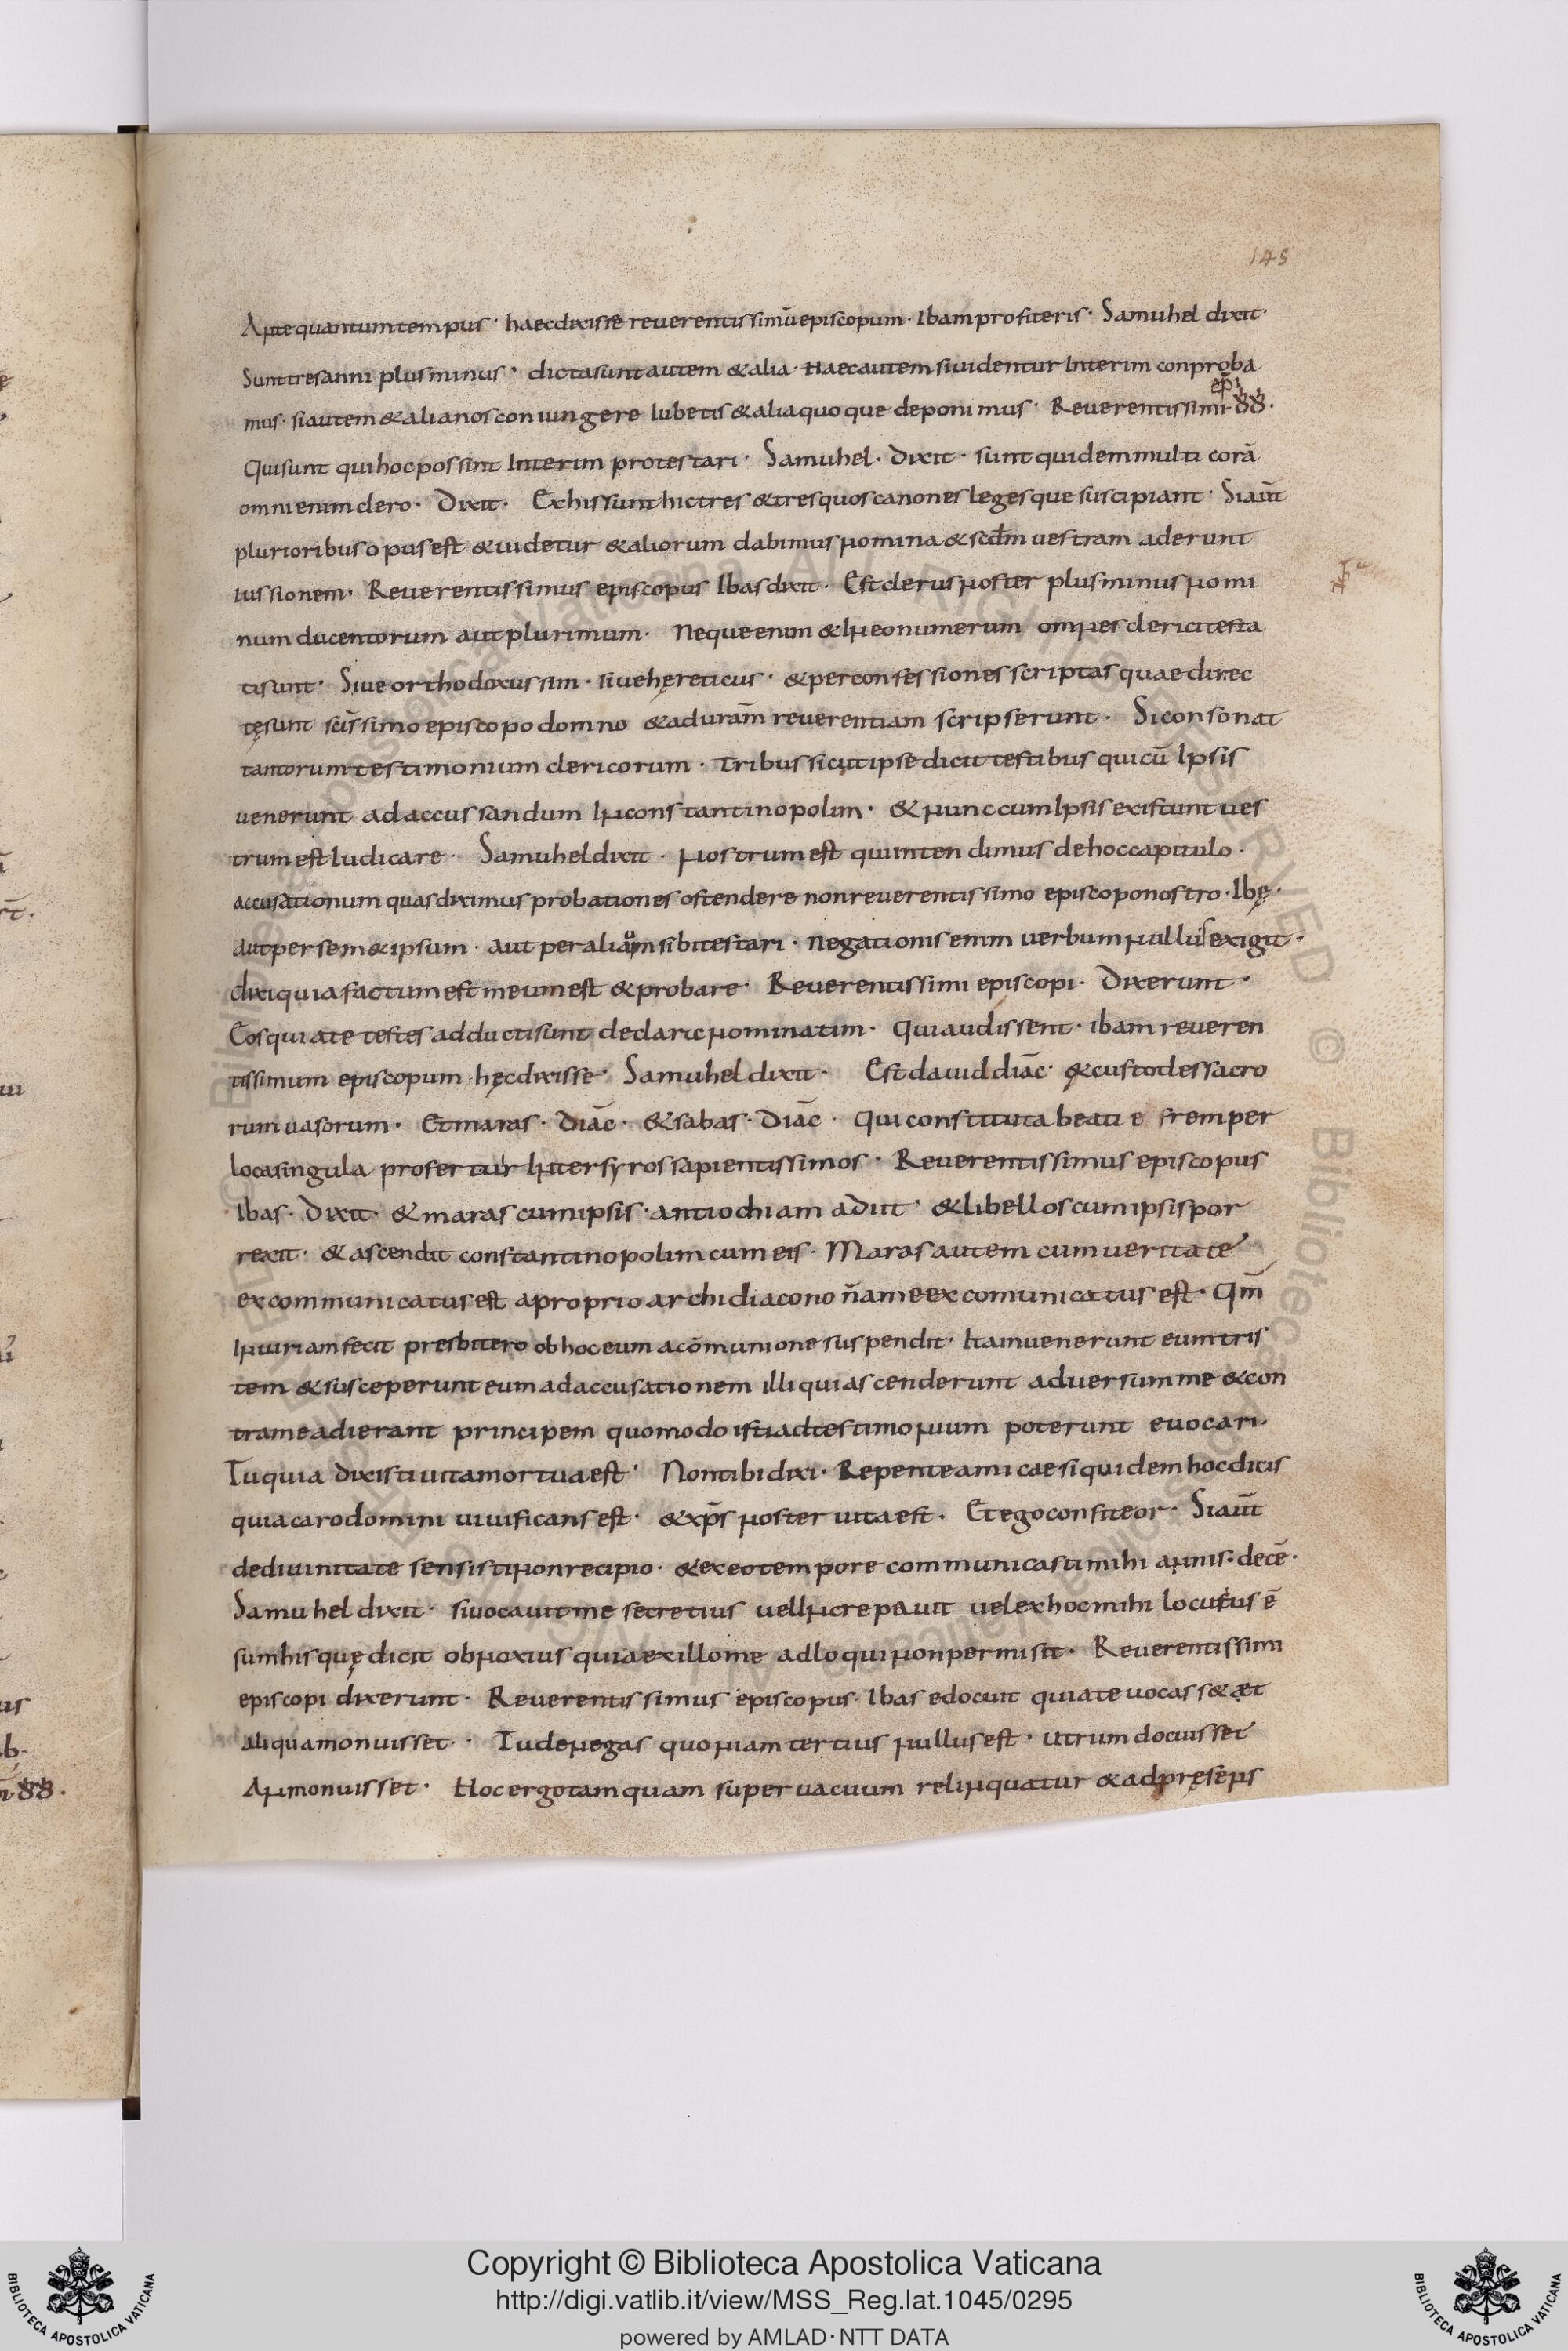 145
Ante quantumtempus · haecdixisse reuerentissimūepiscopum · Ibamprofiteris · Samuhel dixit ·
Sunttresanni plusminus · dictasuntautem &alia · Haecautemsiuidentur Interim conproba
mus · siautem &alianosconiungere Iubetis &aliaquoque deponimus · Reuerentissimi · ep̄i ·
Quisunt quihocpossint Interim protestari · Samuhel · dixit · suntquidemmulti corā
omnienimclero · Dixit · Exhissunthictres &tresquoscanoneslegesquesuscipiant · Siaūt
plurioribusopusest &uidetur &aliorum dabimusnomina &scd̄m uestram aderunt
iussionem · Reuerentissimus episcopus Ibasdixit · Estclerusnoster plusminusnomi
num ducentorum autplurimum · Nequeenim &Ineonumerum omnes clericitesta
tisunt · Siueorthodoxussim · siuehęreticus · &perconfessionesscriptas quaedirec
tęsunt sc̄issimoepiscopodomno &aduram̄ reuerentiam scripserunt · Siconsonat
tantorumtestimonium clericorum · Tribussicutipsedicit testibus quicū Ipsis
uenerunt adaccussandum Inconstantinopolim · &nunccumIpsisexistuntues
trumestIudicare · Samuheldixit · nostrumest quiintendimus dehoccapitulo ·
accusationum quasdiximus probationes ostendere nonreuerentissimo episcoponostro · Ibę ·
autpersem&ipsum · aut peraliūm sibitestari · negationisenim uerbumnullusexigit ·
dixiquiafactumest meumest &probare · Reuerentissimi episcopi · Dixerunt ·
Eosquiate testes adductisunt declaricnominatim · Quiaudissent · ibamreueren
tissimum episcopum hęcdixisse · Samuhel dixit · Estdauid diāc · &custodessacro
rumuasorum · Etmaras · diāc · &sabas · diāc · Quiconstituta beati e fremper
locasingula profertur Intersyrossapientissimos · Reuerentissimus episcopus
Ibas · Dixit · &marascumipsis · antiochiam adiit · &libelloscumipsispor
rexit · &ascendit constantinopolimcumeis · Marasautem cumueritate
excommunicatusest aproprioarchidiacono n̄ameexcomunicatusest · Qm̄
Iniuriamfecit presbitero obhoceum acōmunionesuspendit · Itamuenerunt eumtris
tem &susceperunteumadaccusationem illiquiascenderunt aduersumme &con
trameadierant principem quomodoistiadtestimonium poterunt euocari ·
Tuquia dixistiuitamortuaest · Nontibidixi · Repenteamicaesiquidemhocdicis
quiacarodomini uiuificansest · &xp̄s noster uitaest · Etegoconfiteor · Siaūt
dediuinitate sensistinonrecipio · &exeotempore communicastimihi annis : decē ·
Samuhel dixit · siuocauitme secretius uelIncrepauit uelexhocmihi locutus ē
sumhisquędicit obnoxius quiaexillome adloquinonpermisit · Reuerentissimi
episcopi dixerunt · Reuerentissimus episcopus · Ibas edocuit quiateuocass&æt
aliquamonuisset · Tudenegas quoniamtertius nullusest · utrumdocuisset
Anmonuisset · Hocergotamquam superuacuum relinquatur &adpręsens
Copyright © Biblioteca Apostolica Vaticana
http://digi.vatlib.it/view/MSS_Reg.lat.1045/0295
powered by AMLAD·NTT DATA
BIBLIOTECA APOSTOLICA VATICANA
BIBLIOTECA APOSTOLICA VATICANA